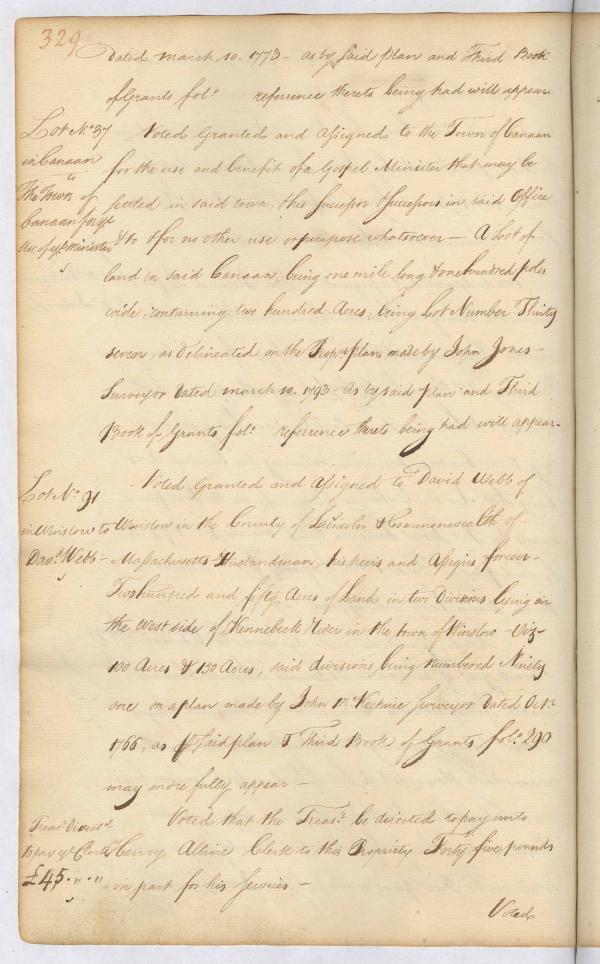 329
Dated March 10. 1773 - as by said plan and Third Book
of Grants fol.o referrence thereto being had will appear.
Lot No. 37
in Canaan
to
The Town of
Canaan for ye
Use of ye Minister
Voted Granted and assigned to the Town of Canaan
for the use and benefit of a Gospel Minister that may be
setled in said town, & his Successor & Successors in said Office
& to & for no other use or purpose whatsoever — A Lot of
land in said Canaan, being one mile long & one hundred poles
wide, containing two hundred Acres, being Lot Number Thirty
seven, as delineated on the Prop.rs plan made by John Jones -
Surveyor Dated March 10. 1793 - As by said plan and Third
Book of Grants fol.o referrence thereto being had will appear.
Lot No. 91
in Winslow to
Davd. Webb -
Voted Granted and assigned to David Webb of
Winslow in the County of Lincoln & Commonwealth of -
Massachusetts Husbandman, his heirs and Assigns forever -
Two hundred and fifty Acres of Land in two Divisions lying on
the West side of Kennebeck River in the town of Winslow - Viz -
100 Acres & 150 Acres, said divisions, being numbered Ninety
one on a plan made by John Mc Kechnie Surveyor Dated Oct.r
1766, as p said plan & Third Book of Grants fol.o 290
may more fully appear —
Treasr. Direct.d
to pay ye Clerk
£45 " "
Voted that the Treas.r be directed to pay unto
Henry Alline Clerk to this Propriety Forty five pounds
in part for his Services -
Voted